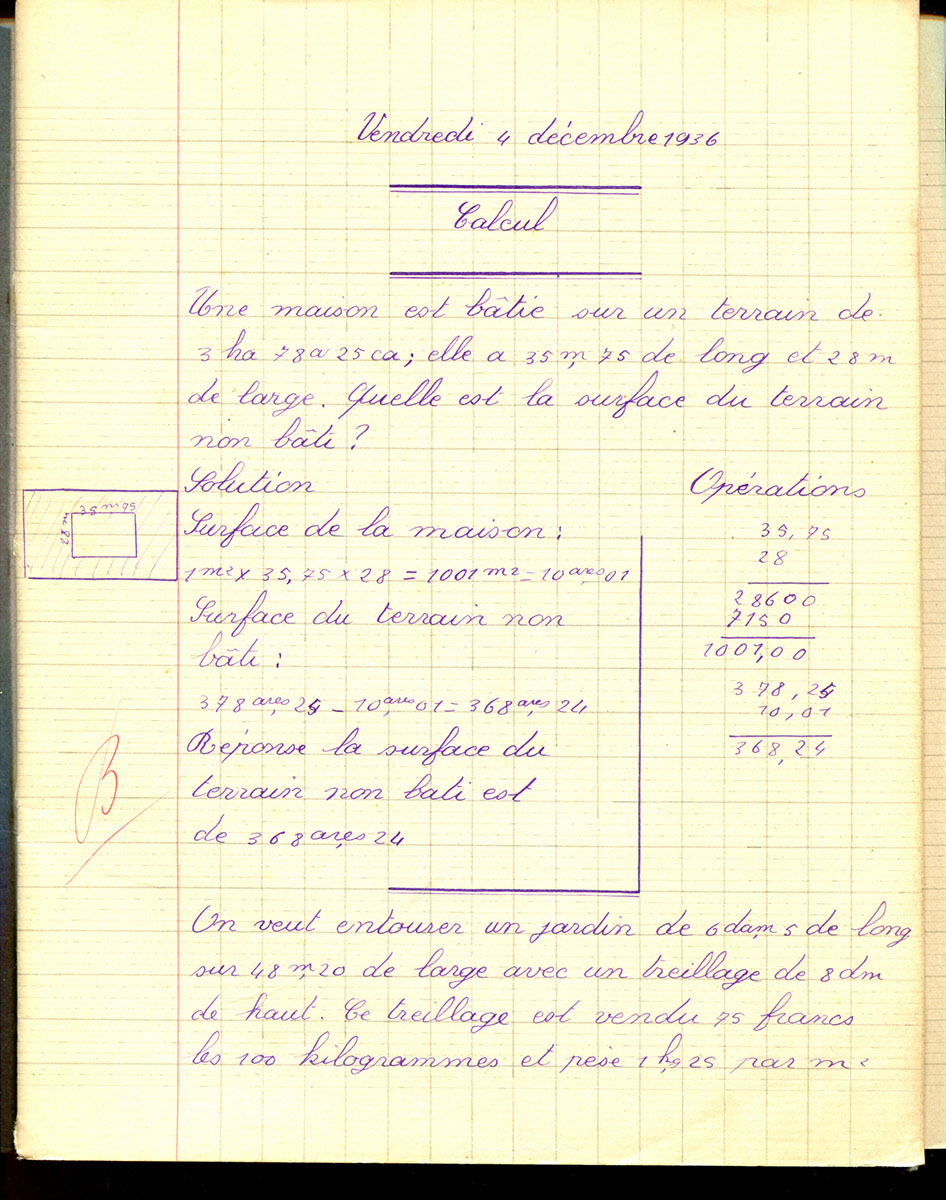 Vendredi 4 décembre 1936
Calcul
Une maison est bâtie sur un terrain de
3 ha 78a 25ca; elle a 35m,75 de long et 28m
de large. Quelle est la surface du terrain
non bâti ?
Solution
35m75
28m
Surface de la maison :
1m² x 35,75 x 28 = 1001m² = 10ares,01
Surface du terrain non
bâti :
378ares,25 - 10ares,01 = 368ares,24
Réponse la surface du
terrain non bati est
de 368ares,24
Opérations
35,75
28
28600
7150
1001,00
378,25
10,01
368,24
B
On veut entourer un jardin de 6dam,5 de long
sur 48m,20 de large avec un treillage de 8dm
de haut. Ce treillage est vendu 75 francs
les 100 kilogrammes et pèse 1kg,25 par m²